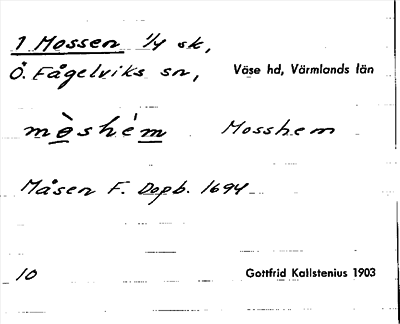 1 Mossen 1/4 sk,
Ö. Fågelviks sn, Väse hd, Värmlands län
mòshèm Mosshem
Måsen F. Dopb. 1694
10 Gottfrid Kallstenius 1903